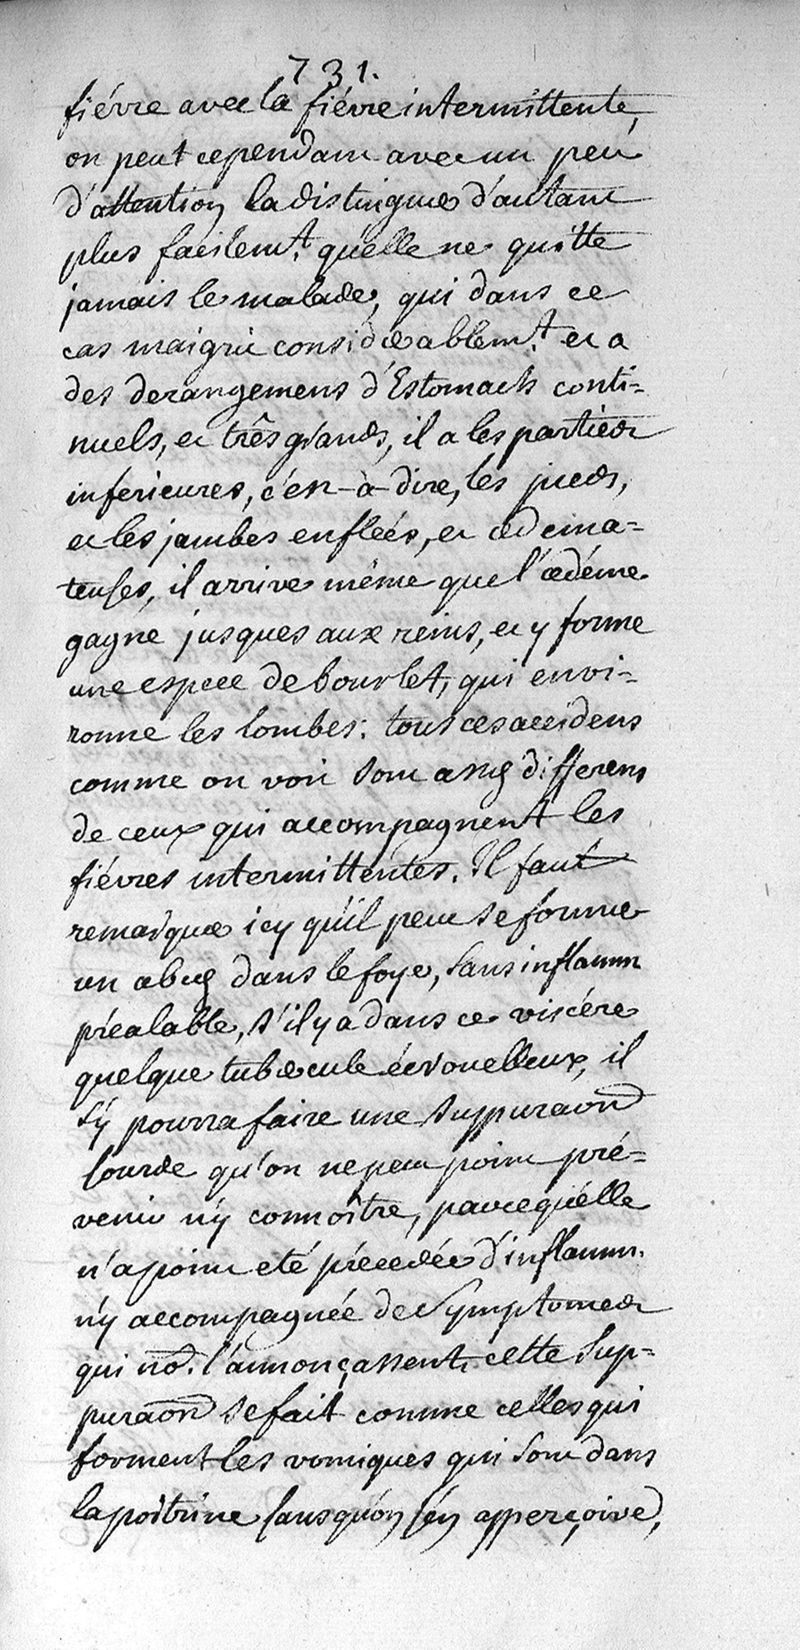 731.
fiévre avec la fiévre intermittente,
on peut cependant avec un peu
d'attention la distinguer d'autant
plus facilemt. qu'elle ne quitte
jamais le malade, qui dans ce
cas maigrit considerablemt. et a
des derangemens d'Estomach conti=
nuels, et três grands, il a les parties
inferieures, c'est-à-dire, les pieds,
et les jambes enfleés, et œdema=
teuses, il arrive même que l'œdéme
gagne jusques aux reins, et y forme
une espece de bourlet, qui envi=
ronne les lombes: tous ces accidens
comme on voit sont assés differens
de ceux qui accompagnent les
fiévres intermittentes. Il faut
remarquer icy qu'il peut se former
un abcés dans le foye, sans inflamm
préalable, s'il y a dans ce viscére
quelque tubercule écrouelleux, il
s'ÿ pourra faire une suppuraon
sourde qu'on ne peut point pré=
venir n'y connoître, parcequ'elle
n'a point eté précedée d'inflamm.
n'y accompagnée de symptomes
qui no. l'annonçassent, cette sup=
puraon se fait comme celles qui
forment les vomiques qui sont dans
la poitrine sans qu'on s'en apperçoive,